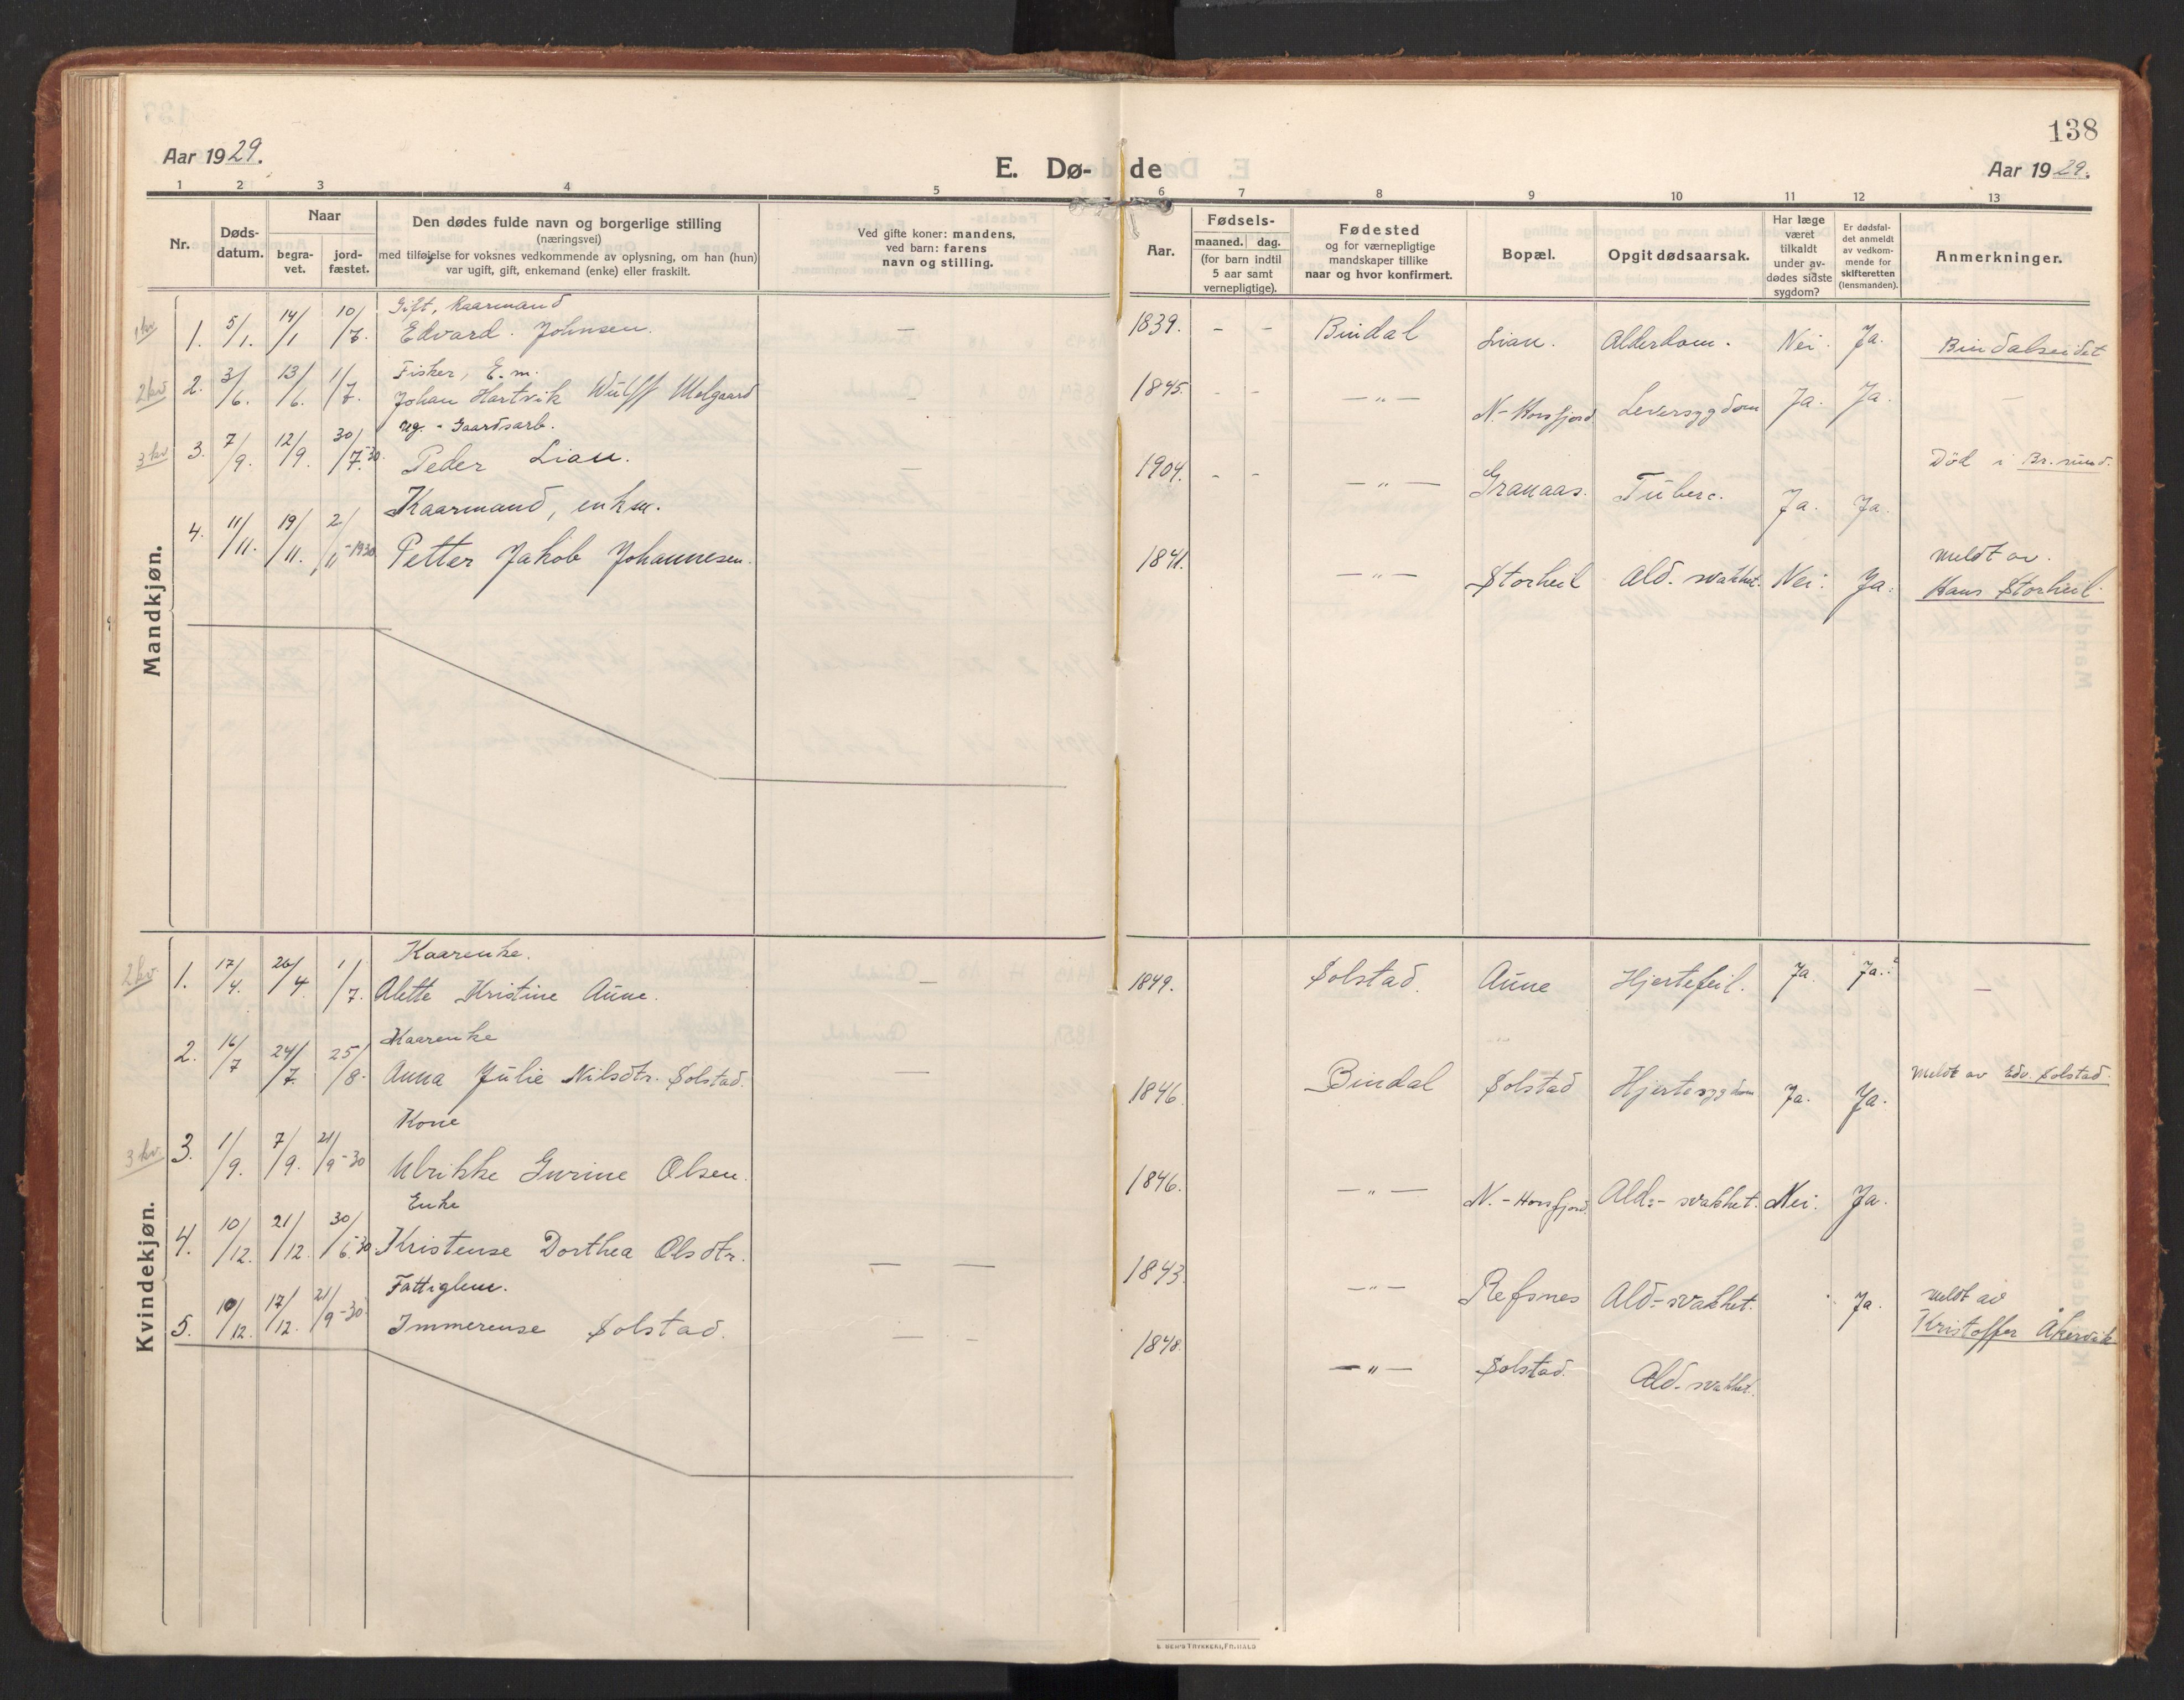 138
Aar 1929.
E. Dø- de
Aar 1929.
1 2 3 4 5 6 7 8 9 10 11 12 13
Nr.
Døds-
datum.
Naar
begra-
vet.
jord-
fæstet.
Den dødes fulde navn og borgerlige stilling
(næringsvei)
med tilføielse for voksnes vedkommende av oplysning, om han (hun)
var ugift, gift, enkemand (enke) eller fraskilt.
Ved gifte koner: mandens,
ved barn: farens
navn og stilling.
Aar.
Fødsels-
maaned. dag.
(for barn indtil
5 aar samt
vernepligtige).
Fødested
og for værnepligtige
mandskaper tillike
naar og hvor konfirmert.
Bopæl.
Opgit dødsaarsak.
Har læge
været
tilkaldt
under av-
dødes sidste
sygdom?
Er dødsfal-
det anmeldt
av vedkom-
mende for
skifteretten
(lensmanden).
Anmerkninger.
Mandkjøn.
Gift, Kaarmand
1kv 1. 5/1. 14/1 10/7. Edvard Johnsen. — 1839. - - Bindal Lian. Alderdom. Nei. Ja. Bindalseidet
Fisker, E.m.
2kv 2. 3/6. 13/6. 1/7. Johan Hartvik Wulff Melgaard — 1845. - - —"— N-Horsfjord Leversygdom Ja. Ja. —
ug. - Gaardsarb.
3 kv 3. 7/9. 12/9. 30/7.-30. Peder Lian. — 1904. - - —"— Granaas. Tuberc. Ja. Ja. Død i Br.sund.
Kaarmand, enkm.
4. 11/11. 19/11. 2/11-1930 Petter Jakob Johannesen. 1841. —"— Storheil Ald. svakhet. Nei. Ja. meldt av.
Hans Storheil.
Kvindekjøn.
Kaarenke.
2kv. 1. 17/4. 26/4 1/7. Alette Kristine Aune. — 1849. Solstad. Aune Hjertefeil. Ja. Ja. —
Kaarenke
2. 16/7 24/7. 25/8. Anna Julie Nilsdtr. Solstad. — 1846. Bindal Solstad Hjertesygdom Ja. Ja. Meldt av Edv. Solstad.
Kone
3kv. 3. 1/9. 7/9. 21/9-30 Ulrikke Gurine Olsen. 1846. —"— N.-Horsfjord. Ald.- svakhet. Nei. Ja.
Enke
4. 10/12. 21/12. 30/6.30 Kristense Dorthea Olsdtr. — — 1843. —"— Refsnes Ald-svakhet. Ja. meldt av
Kristoffer Åkervik
Fattiglem.
5. 10/12. 17/12. 21/9-30 Immerense Solstad. — - 1848. —"— Solstad. Ald-svakhet.